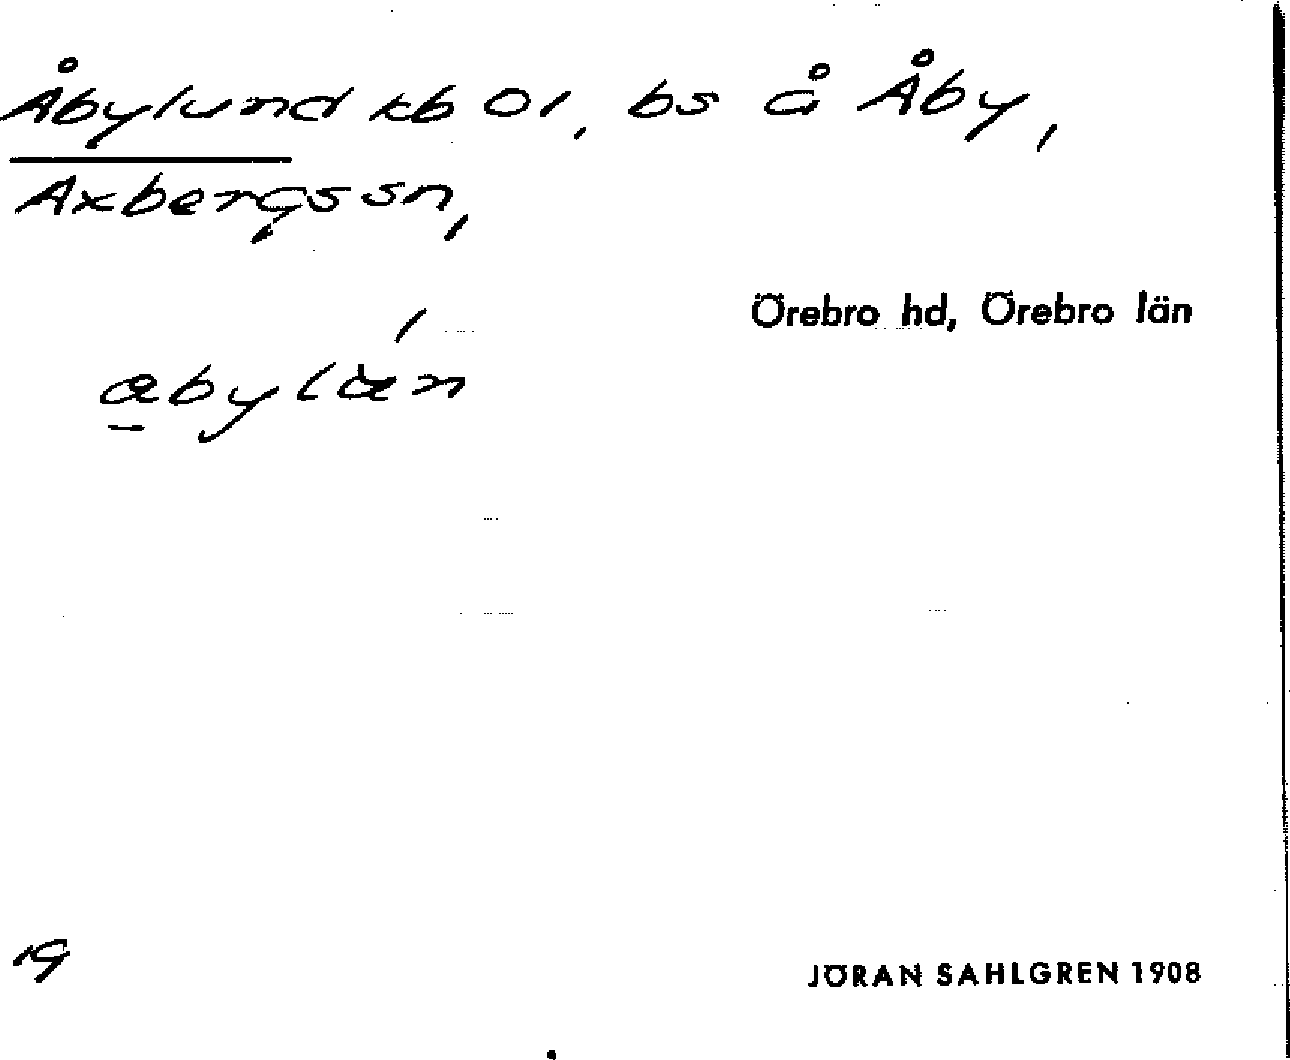 Åbylund kb 01, bs å Åby,
Axbergs sn,
Örebro hd, Örebro län
19
JÖRAN SAHLGREN 1908